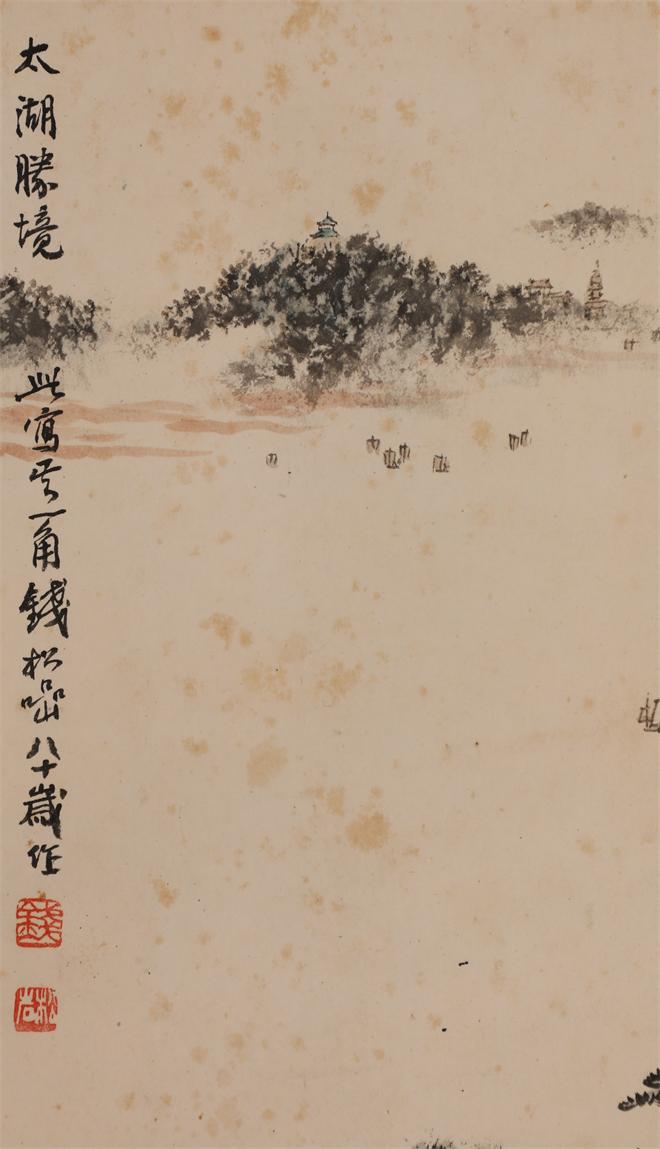 太湖勝境
此寫其一角錢松喦八十歲作
錢
松岩